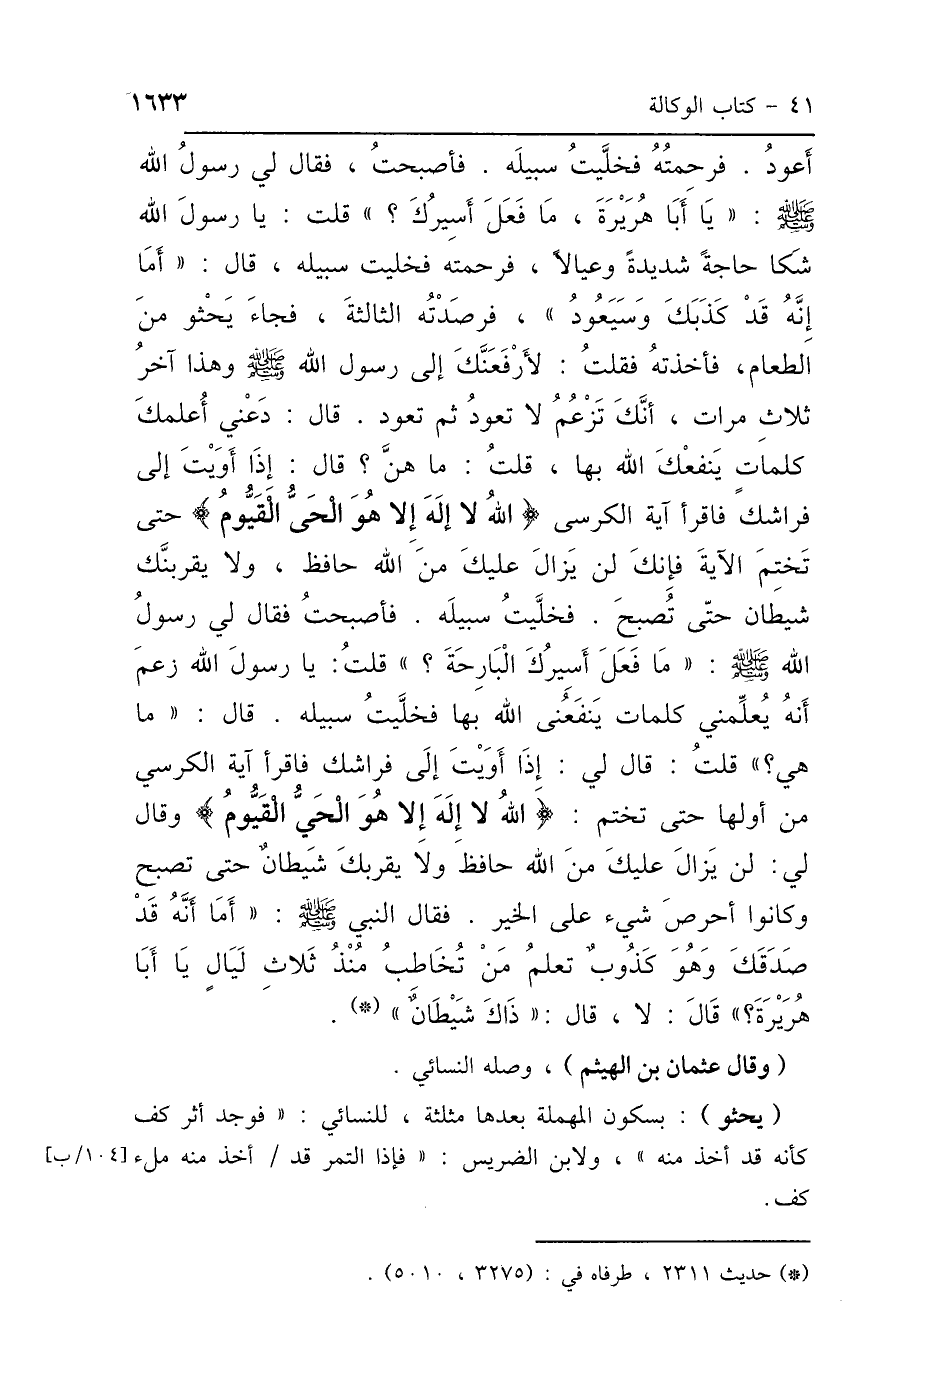 ٤١ - كتاب الوكالة ١٦٣٣
أَعودُ . فرحمتُهُ فخلَّيتُ سبيلَه . فأصبحتُ ، فقال لي رسولُ الله
ﷺ : « يَا أَبَا هُرَيْرَةَ ، مَا فَعَلَ أَسِيرُكَ ؟ » قلت : يا رسولَ الله
شكا حاجةً شديدةً وعيالاً ، فرحمته فخليت سبيله ، قال : « أَمَا
إِنَّهُ قَدْ كَذَبَكَ وَسَيَعُودُ » ، فرصَدْتُه الثالثةَ ، فجاءَ يَحْثو منَ
الطعام، فأخذتهُ فقلتُ : لأَرْفَعَنَّكَ إلى رسول الله ﷺ وهذا آخرُ
ثلاثِ مرات ، أنَّكَ تَزْعُمُ لا تعودُ ثم تعود . قال : دَعْني أُعلمكَ
كلماتٍ يَنفعْكَ الله بها ، قلتُ : ما هنَّ ؟ قال : إِذَا أَوَيْتَ إلى
فراشك فاقرأ آية الكرسى ﴿ اللهُ لا إِلَهَ إِلا هُوَ الْحَيُّ الْقَيُّومُ ﴾ حتى
تَختِمَ الآيةَ فإنكَ لن يَزالَ عليكَ منَ الله حافظ ، ولا يقربنَّك
شيطان حتّى تُصبحَ . فخلَّيتُ سبيلَه . فأصبحتُ فقال لي رسولُ
الله ﷺ : « مَا فَعَلَ أَسِيرُكَ الْبَارِحَةَ ؟ » قلتُ: يا رسولَ الله زعمَ
أَنهُ يُعلِّمني كلمات يَنفَعُنى الله بها فخلَّيتُ سبيله . قال : « ما
هي؟» قلتُ : قال لي : إِذَا أَوَيْتَ إلَى فراشك فاقرأ آية الكرسي
من أولها حتى تختم : ﴿ اللهُ لا إِلَهَ إِلا هُوَ الْحَيُّ الْقَيُّومُ ﴾ وقال
لي: لن يَزالَ عليكَ منَ الله حافظ ولا يقربكَ شَيطانٌ حتى تصبح
وكانوا أحرصَ شيء على الخير . فقال النبي ﷺ : « أَمَا أَنَّهُ قَدْ
صَدَقَكَ وَهُوَ كَذُوبٌ تعلمُ مَنْ تُخَاطِبُ مُنْذُ ثَلاثِ لَيَالٍ يَا أَبَا
هُرَيْرَةَ؟» قَالَ : لا ، قال :« ذَاكَ شَيْطَانٌ » (*) .
( وقال عثمان بن الهيثم ) ، وصله النسائي .
( يحثو ) : بسكون المهملة بعدها مثلثة ، للنسائي : « فوجد أثر كف
كأنه قد أخذ منه » ، ولابن الضريس : « فإذا التمر قد / أخذ منه ملء [١٠٤/ب]
كف .
(*) حديث ٢٣١١ ، طرفاه في : (٣٢٧٥ ، ٥٠١٠) .